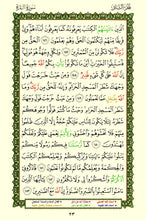 الَّذِينَ ءَاتَيْنَٰهُمُ الْكِتَٰبَ يَعْرِفُونَهُ كَمَا يَعْرِفُونَ أَبْنَاءَهُمْ وَإِنَّ فَرِيقًا
مِّنْهُمْ لَيَكْتُمُونَ الْحَقَّ وَهُمْ يَعْلَمُونَ ١٤٦ الْحَقُّ مِن رَّبِّكَ فَلَا
تَكُونَنَّ مِنَ الْمُمْتَرِينَ ١٤٧ وَلِكُلٍّ وِجْهَةٌ هُوَ مُوَلِّيهَا فَاسْتَبِقُوا
الْخَيْرَٰتِ أَيْنَ مَا تَكُونُوا يَأْتِ بِكُمُ اللَّهُ جَمِيعًا إِنَّ اللَّهَ عَلَىٰ كُلِّ
شَىْءٍ قَدِيرٌ ١٤٨ وَمِنْ حَيْثُ خَرَجْتَ فَوَلِّ وَجْهَكَ شَطْرَ الْمَسْجِدِ
الْحَرَامِ وَإِنَّهُ لَلْحَقُّ مِن رَّبِّكَ وَمَا اللَّهُ بِغَٰفِلٍ عَمَّا تَعْمَلُونَ ١٤٩
وَمِنْ حَيْثُ خَرَجْتَ فَوَلِّ وَجْهَكَ شَطْرَ الْمَسْجِدِ الْحَرَامِ وَحَيْثُ
مَا كُنتُمْ فَوَلُّوا وُجُوهَكُمْ شَطْرَهُ لِئَلَّا يَكُونَ لِلنَّاسِ عَلَيْكُمْ
حُجَّةٌ إِلَّا الَّذِينَ ظَلَمُوا مِنْهُمْ فَلَا تَخْشَوْهُمْ وَاخْشَوْنِى وَلِأُتِمَّ
نِعْمَتِى عَلَيْكُمْ وَلَعَلَّكُمْ تَهْتَدُونَ ١٥٠ كَمَا أَرْسَلْنَا فِيكُمْ
رَسُولًا مِّنكُمْ يَتْلُوا عَلَيْكُمْ ءَايَٰتِنَا وَيُزَكِّيكُمْ وَيُعَلِّمُكُمُ
الْكِتَٰبَ وَالْحِكْمَةَ وَيُعَلِّمُكُم مَّا لَمْ تَكُونُوا تَعْلَمُونَ ١٥١
فَاذْكُرُونِى أَذْكُرْكُمْ وَاشْكُرُوا لِى وَلَا تَكْفُرُونِ ١٥٢ يَٰأَيُّهَا
الَّذِينَ ءَامَنُوا اسْتَعِينُوا بِالصَّبْرِ وَالصَّلَوٰةِ إِنَّ اللَّهَ مَعَ الصَّٰبِرِينَ ١٥٣
٢٣